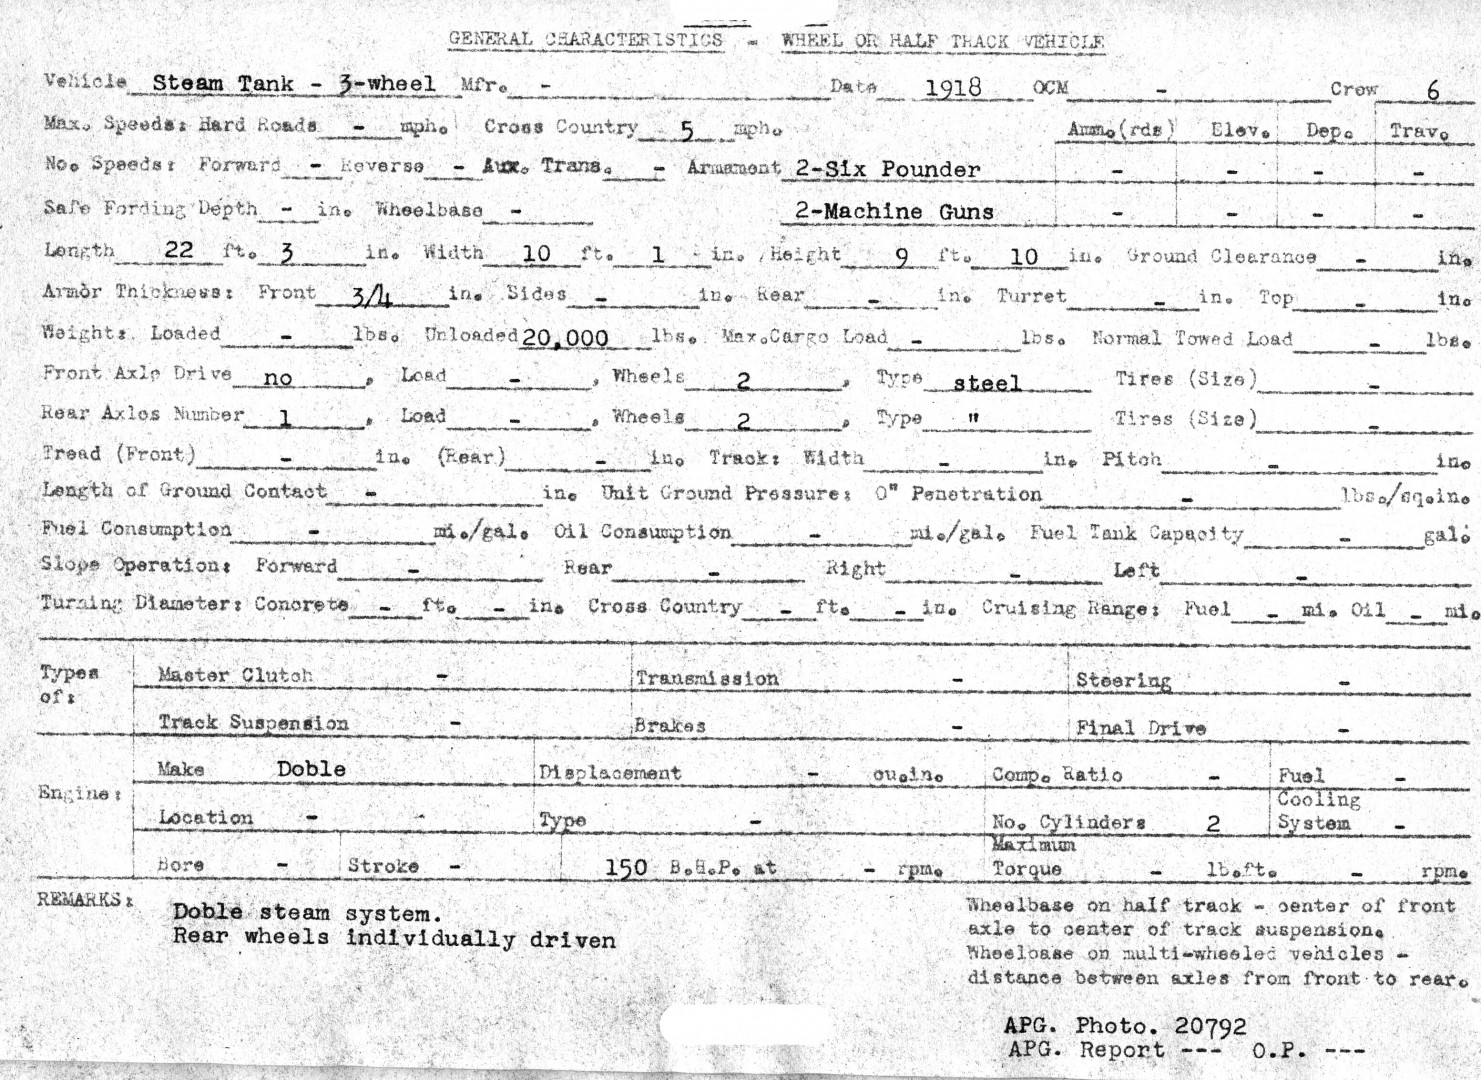 GENERAL CHARACTERISTICS - WHEEL OR HALF TRACK VEHICLE
Vehicle Steam Tank - 3-wheel Mfr. - Date 1918 OCM - Crew 6
Max. Speeds: Hard Roads - mph. Cross Country 5 mph. Ammo.(rds) Elev. Dep. Trav.
No. Speeds: Forward - Reverse - Aux. Trans. - Armament 2-Six Pounder - - - -
Safe Fording Depth - in. Wheelbase - 2-Machine Guns - - - -
Length 22 ft. 3 in. Width 10 ft. 1 in. Height 9 ft. 10 in. Ground Clearance - in.
Armor Thickness: Front 3/4 in. Sides - in. Rear - in. Turret - in. Top - in.
Weight: Loaded - lbs. Unloaded 20,000 lbs. Max.Cargo Load - lbs. Normal Towed Load - lbs.
Front Axle Drive no , Load - , Wheels 2 , Type steel Tires (Size) -
Rear Axles Number 1 , Load - , Wheels 2 , Type " Tires (Size) -
Tread (Front) - in. (Rear) - in. Track: Width - in. Pitch - in.
Length of Ground Contact - in. Unit Ground Pressure: 0" Penetration - lbs./sq.in.
Fuel Consumption - mi./gal. Oil Consumption - mi./gal. Fuel Tank Capacity - gal.
Slope Operation: Forward - Rear - Right - Left -
Turning Diameter: Concrete - ft. - in. Cross Country - ft. - in. Cruising Range: Fuel - mi. Oil - mi.
Types of: Master Clutch - Transmission - Steering -
Track Suspension - Brakes - Final Drive -
Engine: Make Doble Displacement - cu.in. Comp. Ratio - Fuel -
Location - Type - No. Cylinders 2 Cooling System -
Bore - Stroke - 150 B.H.P. at - rpm. Maximum Torque - lb.ft. - rpm.
REMARKS:
Doble steam system.
Rear wheels individually driven
Wheelbase on half track - center of front
axle to center of track suspension.
Wheelbase on multi-wheeled vehicles -
distance between axles from front to rear.
APG. Photo. 20792
APG. Report --- O.P. ---